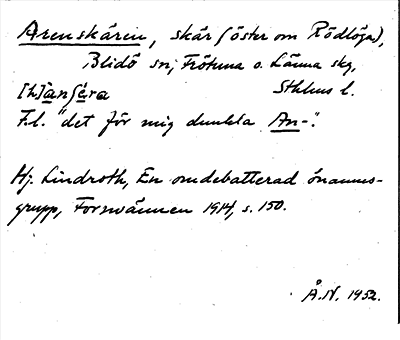 Arenskären, skär (öster om Rödlöga),
Blidö sn, Frötuna o. Länna skg,
Sthlms l.
[2.]anʃæra
F.l. "det för mig dunkla An-".
Hj. Lindroth, En omdebatterad önamns-
grupp, Fornvännen 1914, s. 150.
Å.N. 1952.